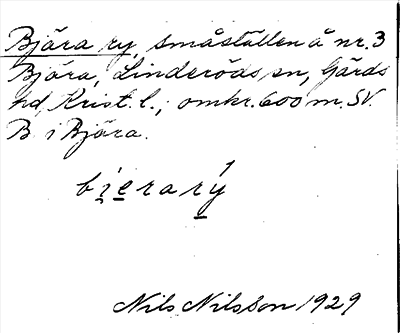 Bjära ry, småställen å nr. 3
Bjära, Linderöds sn, Gärds
hd, Krist. l.; omkr. 600 m. SV.
B i Bjära.
bierarý
Nils Nilsson 1929